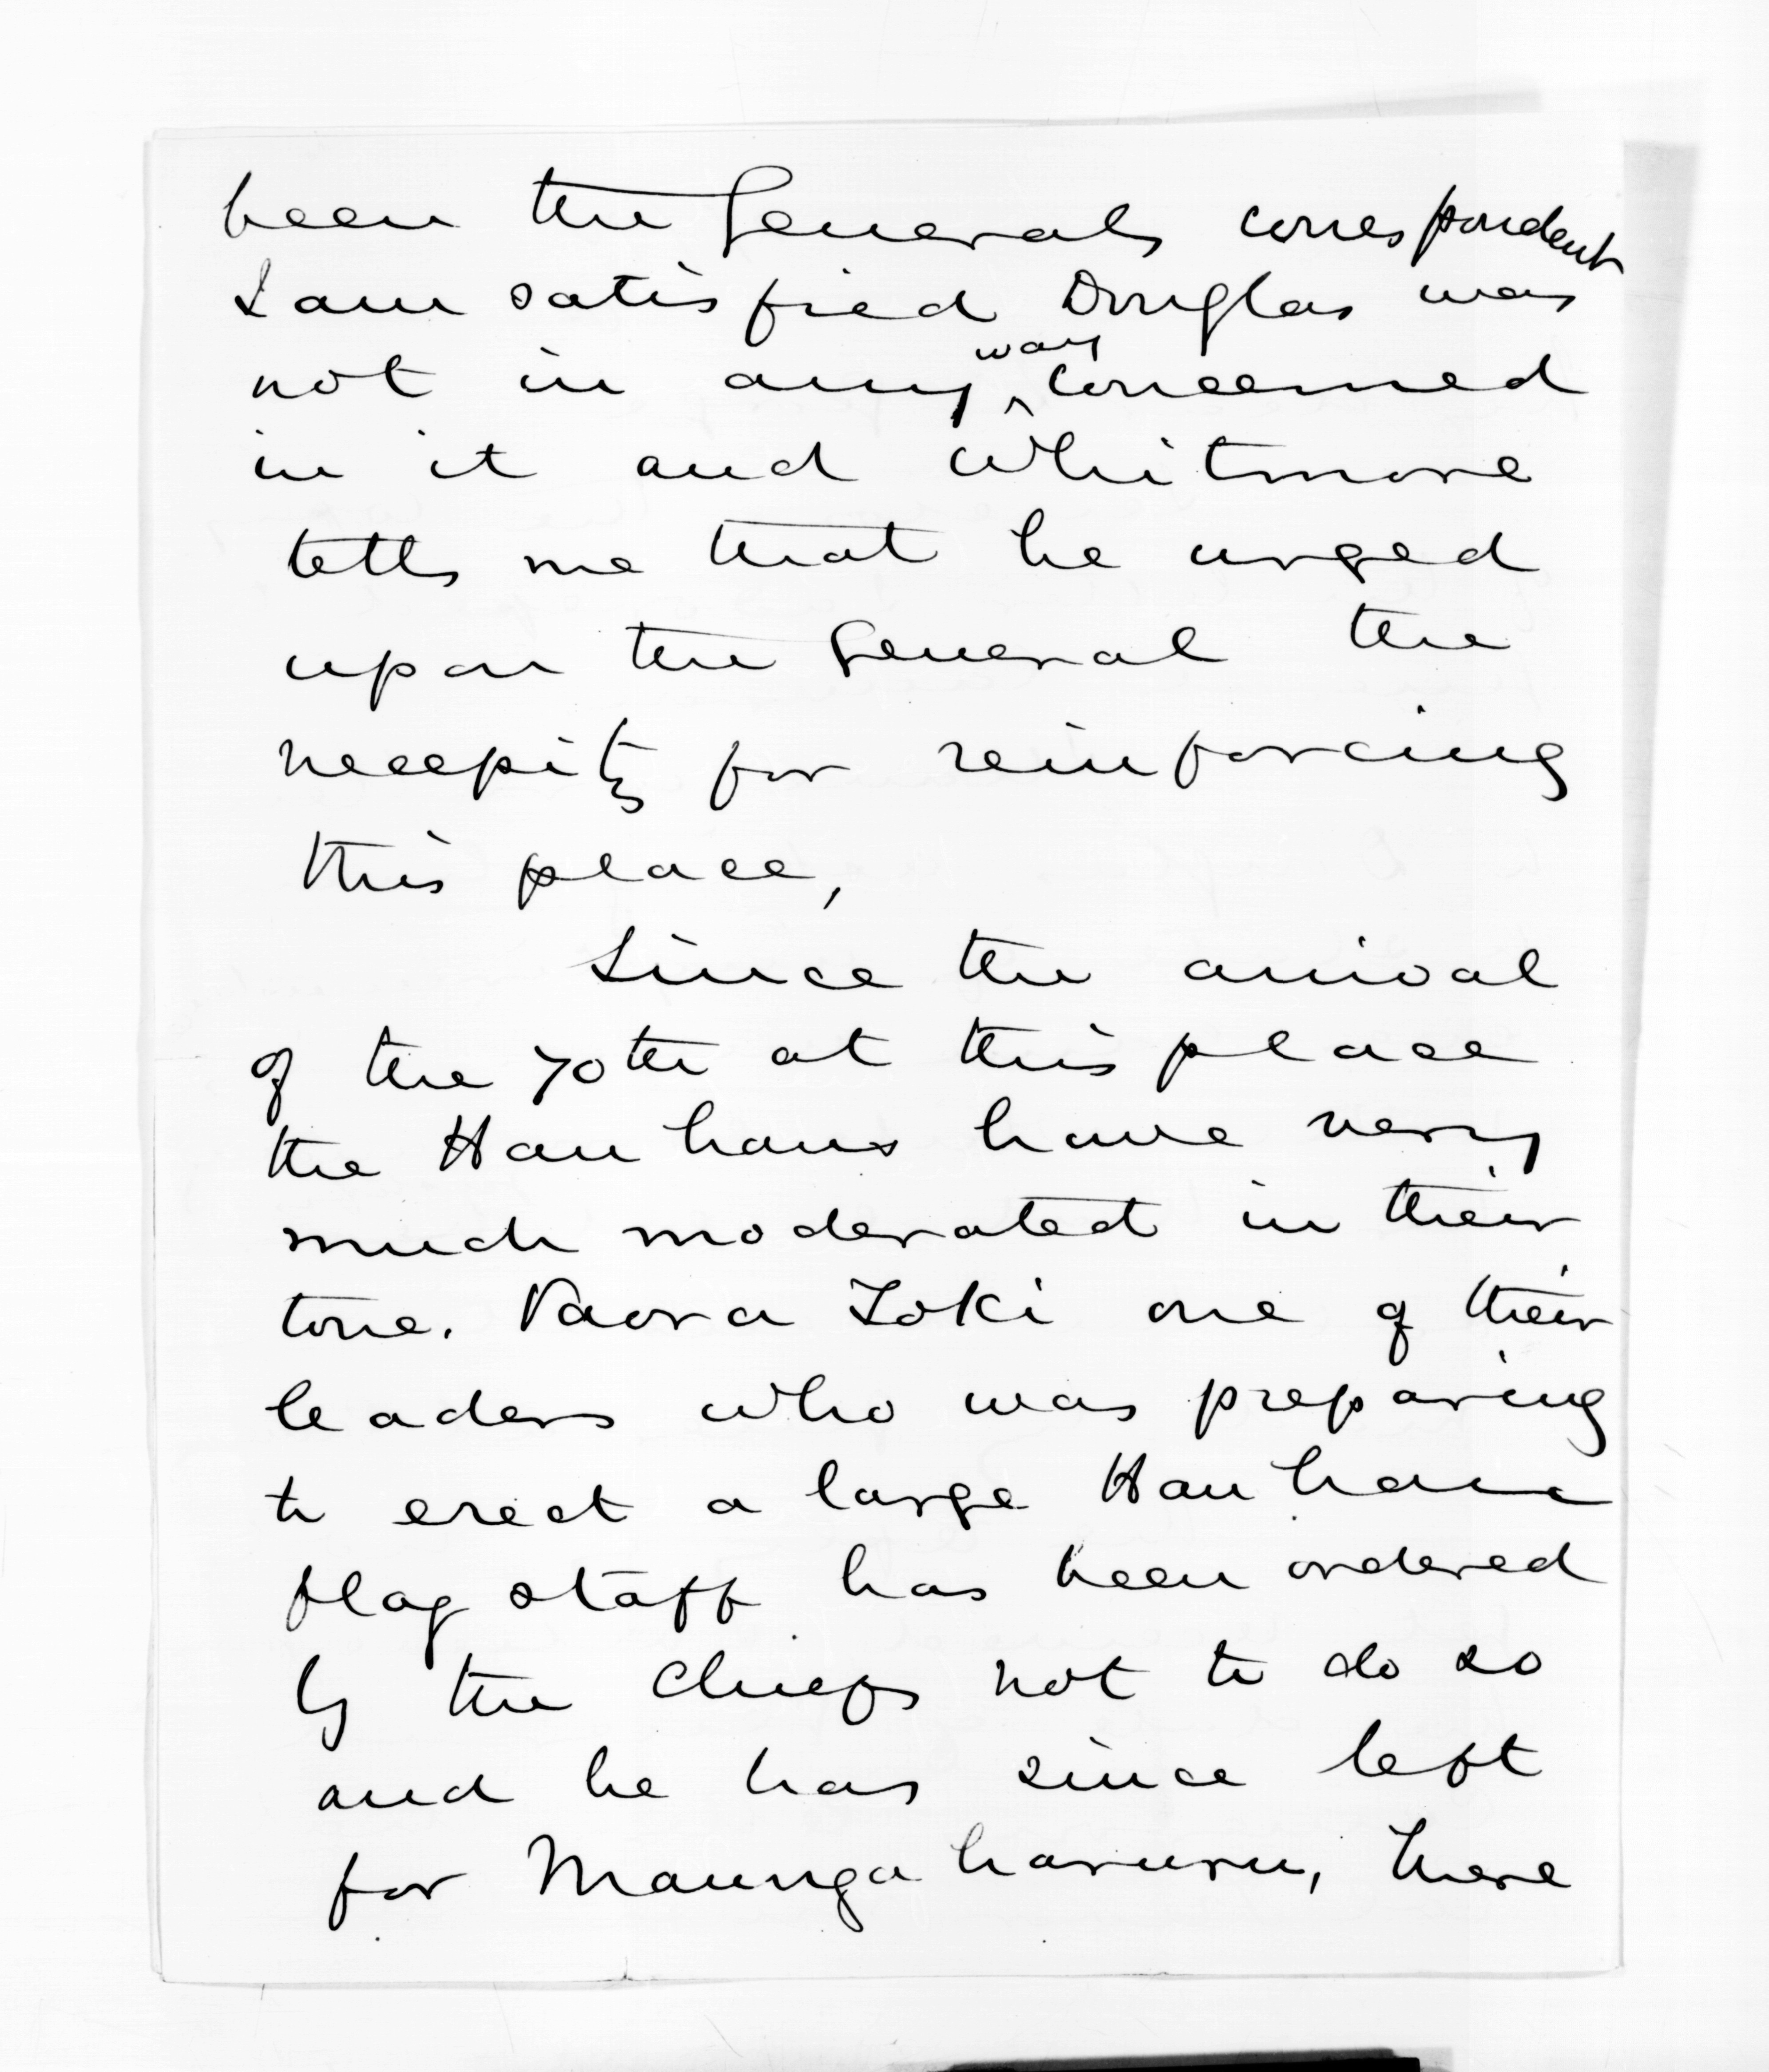 been the Generals correspondent
I am satisfied Douglas was
not in any way concerned
in it and Whitmore
tells me that he urged
upon the General the
necessity for reinforcing
this place,
Since the arrival
of the 70th at this place
the Hau haus have very
much moderated in their
tone. Paora Toki one of their
leaders who was preparing
to erect a large Hau hau
flag staff has been ordered
by the chiefs not to do so
and he has since left
for Maunga haruru, there